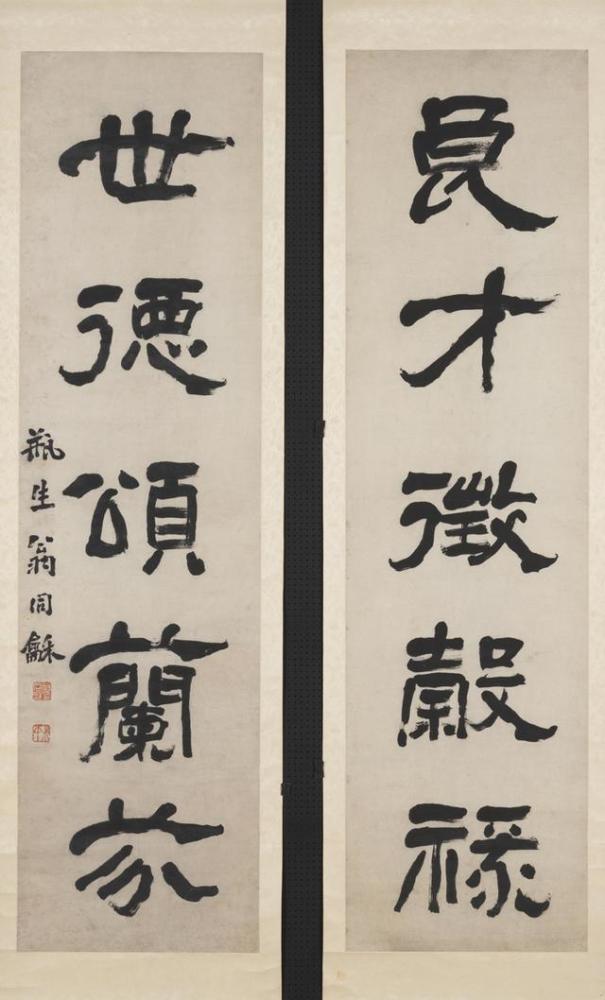 良才徵穀祿
世德頌蘭芬
瓶生翁同龢